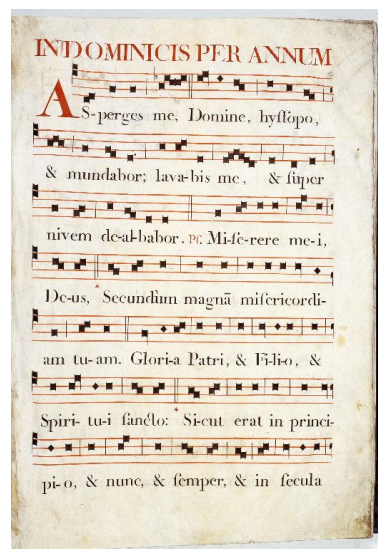 IN DOMINICIS PER ANNUM
AS-perges me, Domine, hyſſopo,
& mundabor; lava-bis me, & ſuper
nivem de-al-babor. Pſ. Mi-ſe-rere me-i,
De-us, * Secundùm magnā miſericordi-
am tu-am. Glori-a Patri, & Fi-li-o, &
Spiri-tu-i ſancto: * Si-cut erat in princi-
pi-o, & nunc, & ſemper, & in ſecula